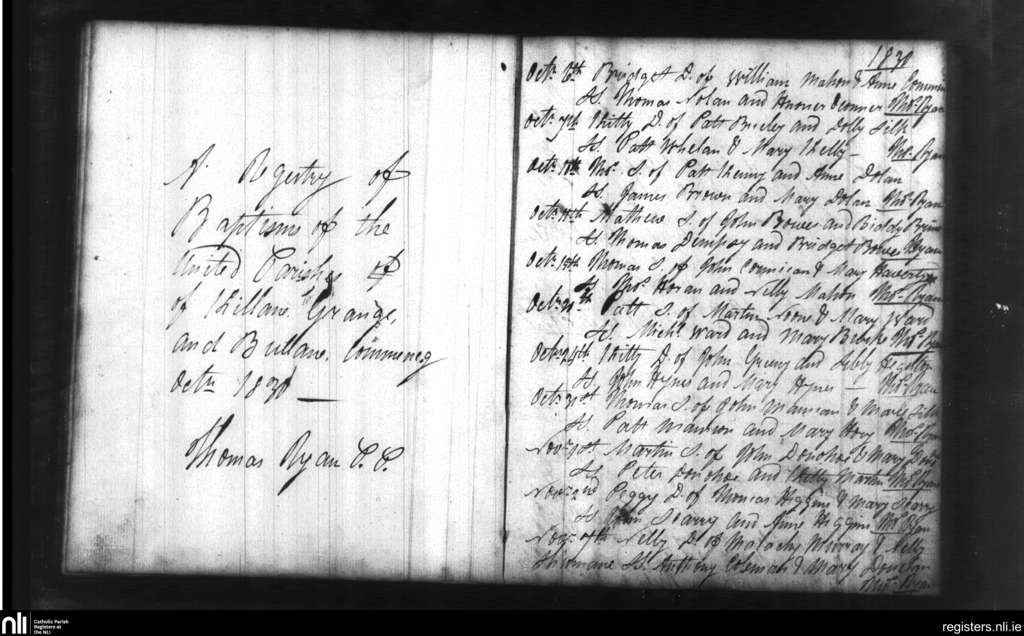 A Regestry of
Baptisms of the
United Parishes of
of Killane Grange,
and Bullane. Commencg
Octr 1830
Thomas Ryan P.P.
1830
Octr 6th Bridget D. of William Mahon & Anne
Ss. Thomas Nolan and Honor Connor Thos. Ryan
Octr 7th Kitty D. of Patt and Dolly Silk
Ss. Patt Whelan & Mary Kelly - Thos. Ryan
Octr Thos. S. of Patt Kenny and Anne Dolan
Ss. James Brown and Mary Dolan Thos Ryan
Octr Mathew S. of John Bower and Biddy
Ss. Thomas Dempsy and Bridget Bower Ryan
Octr Thomas S. of John & Mary Haverty
Ss. Thos. Horan and Nelly Mahon Thos. Ryan
Octr Patt S. of Martin & Mary Ward
Ss. Michl. Ward and Mary Burke Thos.
Octr 24th Kitty D. of John and
Ss. John Hynes and Mary Hynes -
Octr 31st Thomas S. of John & Mary
Ss. Patt Mannion and Mary Thos. Ryan
Novr 1st Martin S. of John Donohoe & Mary
Ss. Peter Donohoe and Kitty Martin Thos Ryan
Novr 2nd Peggy D. of Thomas Higgins & Mary Scarry
Ss. John Scarry and Anne Higgins Thos Ryan
Novr 7th Nelly D. of Malachy Murray & Nelly
Ss. Anthony & Mary
Thos. Ryan
nli
Catholic Parish
Registers at
the NLI
registers.nli.ie